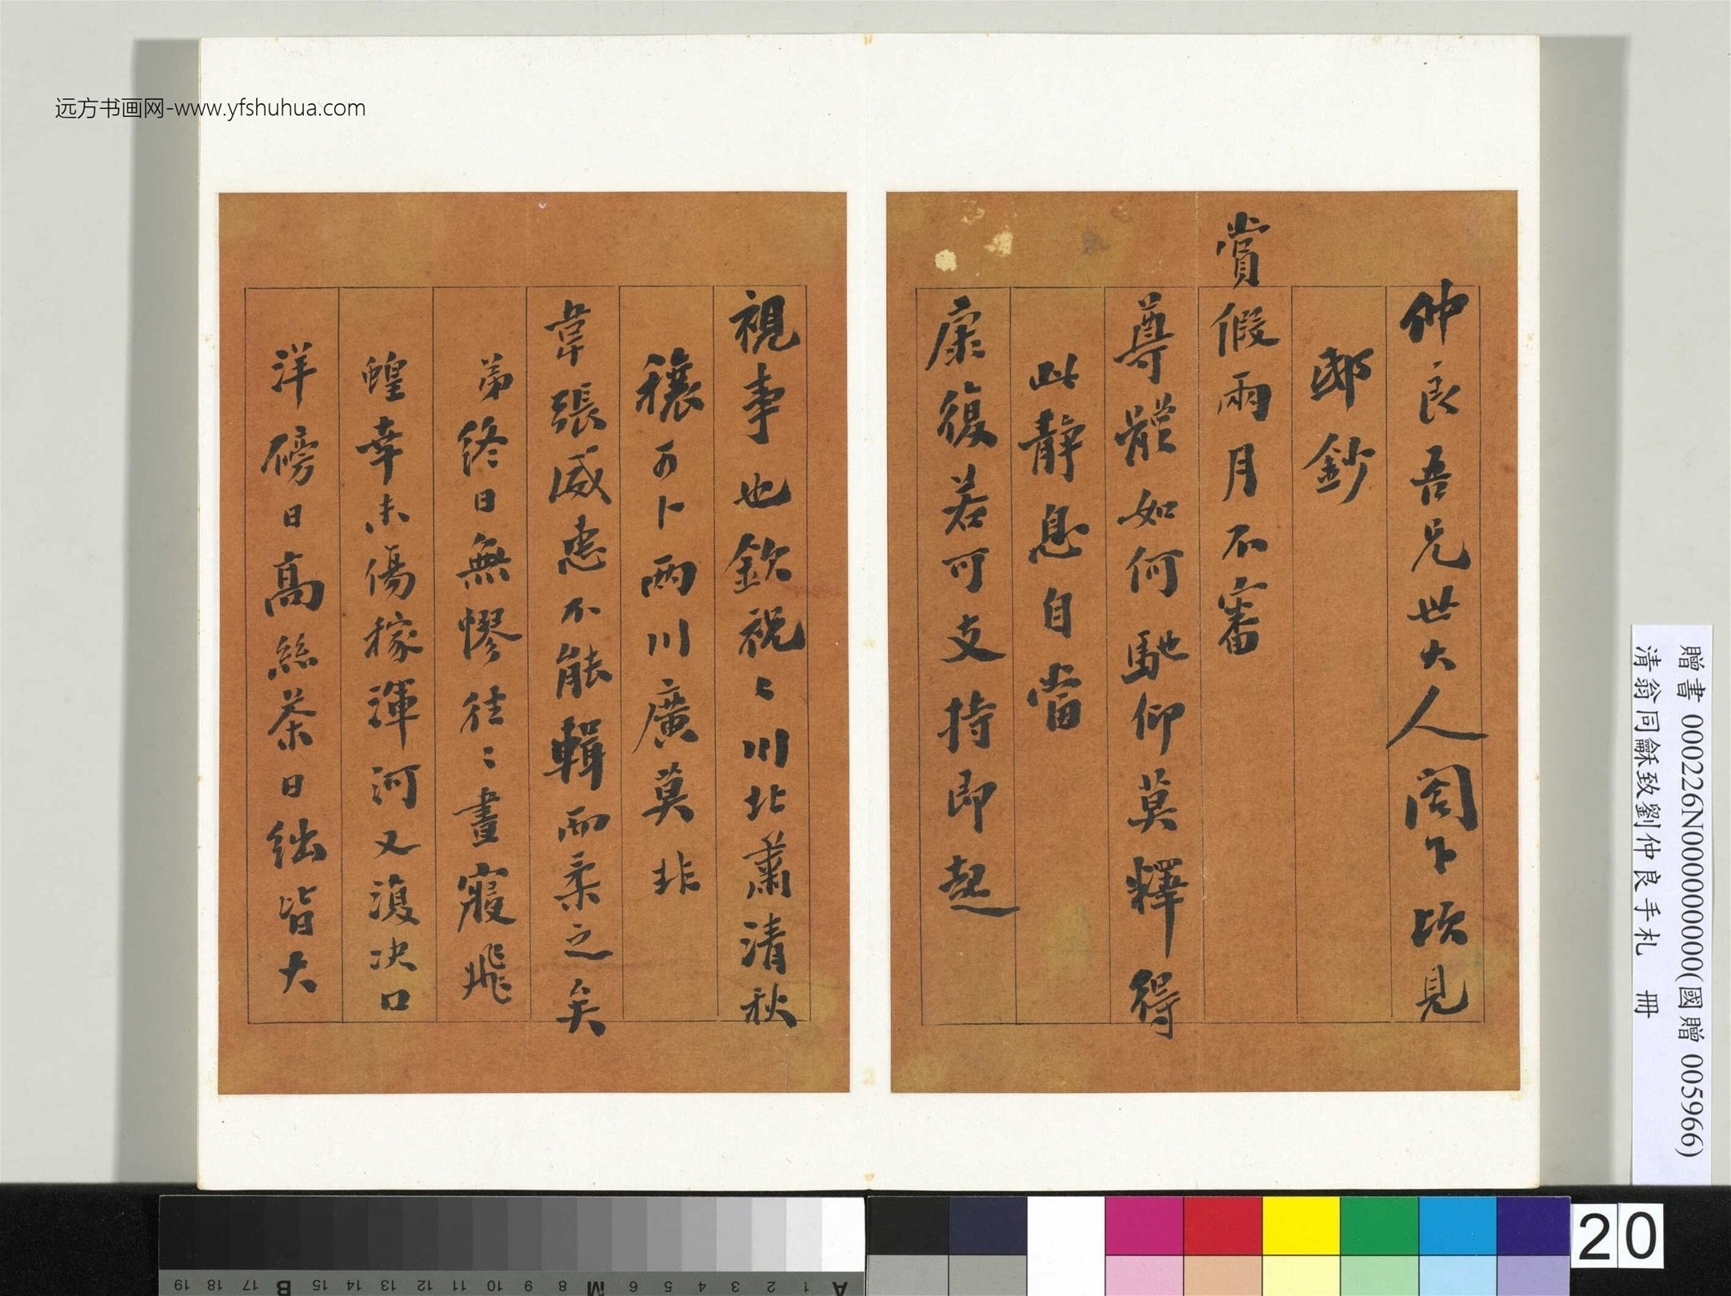 仲良吾兄世大人閣下頃見
邸鈔
賞假兩月不審
尊體如何馳仰莫釋得
此靜息自當
康復若可支持即起
視事也欽祝々川北肅清秋
穰可卜兩川廣莫非
韋張威惠不能輯而柔之矣
弟終日無憀往々晝寢飛
蝗幸未傷稼渾河又復決口
洋磅日高絲茶日絀皆大
远方书画网-www.yfshuhua.com
贈書 000226N000000000(國贈 005966)
清翁同龢致劉仲良手札 冊
20
A 1 2 3 4 5 6 M 8 9 10 11 12 13 14 15 B 17 18 19